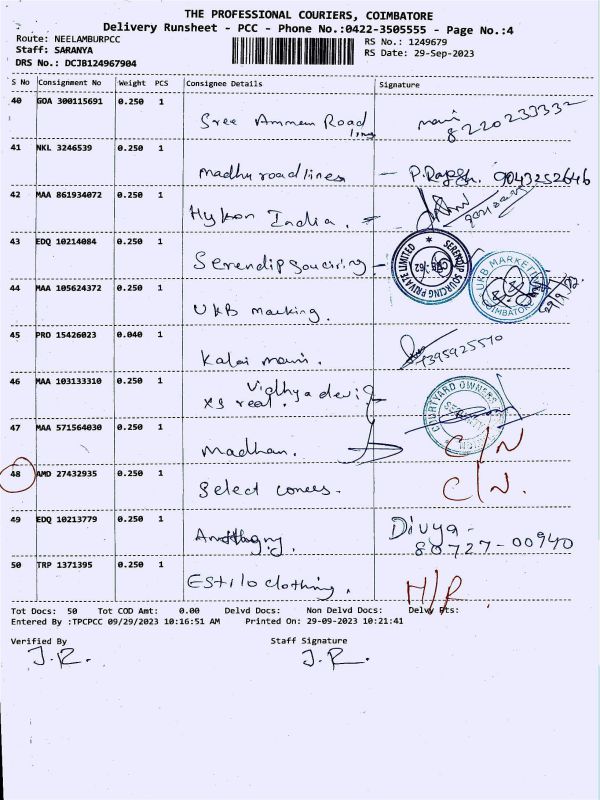 THE PROFESSIONAL COURIERS, COIMBATORE
Delivery Runsheet - PCC - Phone No.:0422-3505555 - Page No.:4
Route: NEELAMBURPCC
Staff: SARANYA
DRS No.: DCJB124967904
RS No.: 1249679
RS Date: 29-Sep-2023
S No Consignment No Weight PCS Consignee Details Signature
40 GOA 300115691 0.250 1
Sree Amman Road lines
mani 8220233332
41 NKL 3246539 0.250 1
Madhu roadlines - P.Rajesh. 9043252646
42 MAA 861934072 0.250 1
Hykon India. -
43 EDQ 10214084 0.250 1
Serendipsourcing -
SERENDIP SOURCING PRIVATE LIMITED
44 MAA 105624372 0.250 1
UKB marking.
UKB MARKETING
COIMBATORE
45 PRO 15426023 0.040 1
Kalai mani.
9395925570
46 MAA 103133310 0.250 1
Vidhyadevi
xs real.
COURTYARD OWNERS
47 MAA 571564030 0.250 1
Madhan.
C/N
48 AMD 27432935 0.250 1
Select conees.
C/N.
49 EDQ 10213779 0.250 1
Divya-
80727-00940
50 TRP 1371395 0.250 1
Estilo clothing.
H/R.
Tot Docs: 50 Tot COD Amt: 0.00 Delvd Docs: Non Delvd Docs: Delvy Pts:
Entered By :TPCPCC 09/29/2023 10:16:51 AM Printed On: 29-09-2023 10:21:41
Verified By Staff Signature
J.R. J.R.